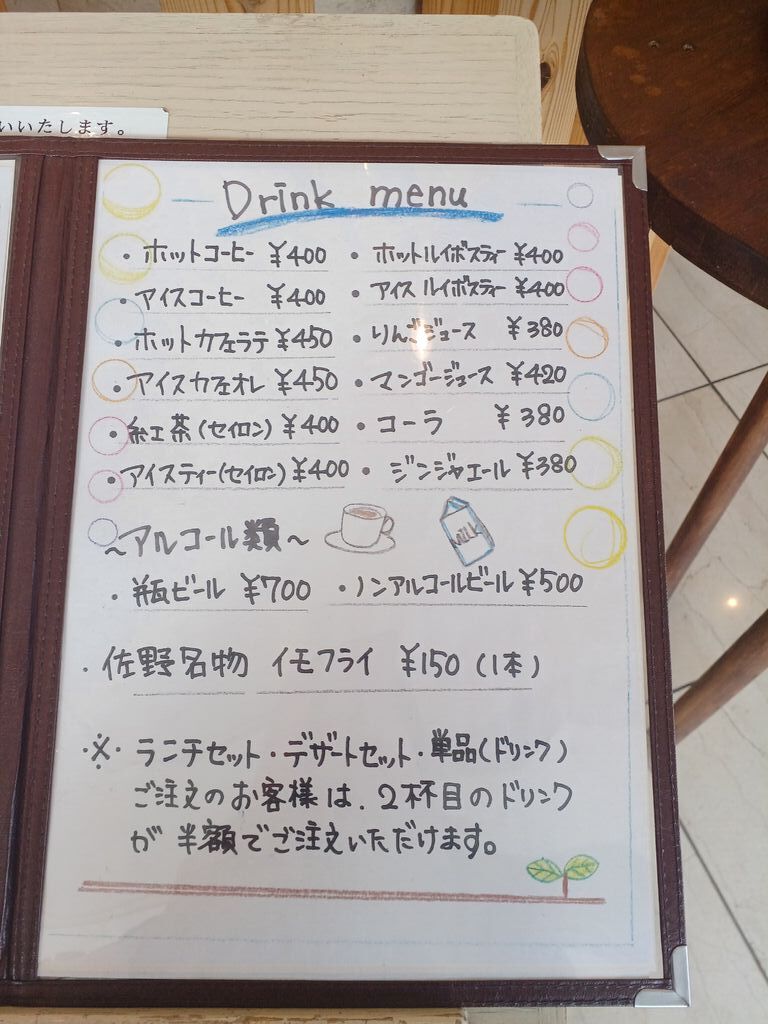 いいたします。
Drink menu
・ホットコーヒー ¥400 ・ホットルイボスティー ¥400
・アイスコーヒー ¥400 ・アイスルイボスティー ¥400
・ホットカフェラテ ¥450 ・りんごジュース ¥380
・アイスカフェオレ ¥450 ・マンゴージュース ¥420
・紅茶(セイロン) ¥400 ・コーラ ¥380
・アイスティー(セイロン) ¥400 ・ジンジャエール ¥380
～アルコール類～
MILK
・瓶ビール ¥700 ・ノンアルコールビール ¥500
・佐野名物 イモフライ ¥150 (1本)
※ ランチセット・デザートセット・単品(ドリンク)
ご注文のお客様は、2杯目のドリンク
が半額でご注文いただけます。